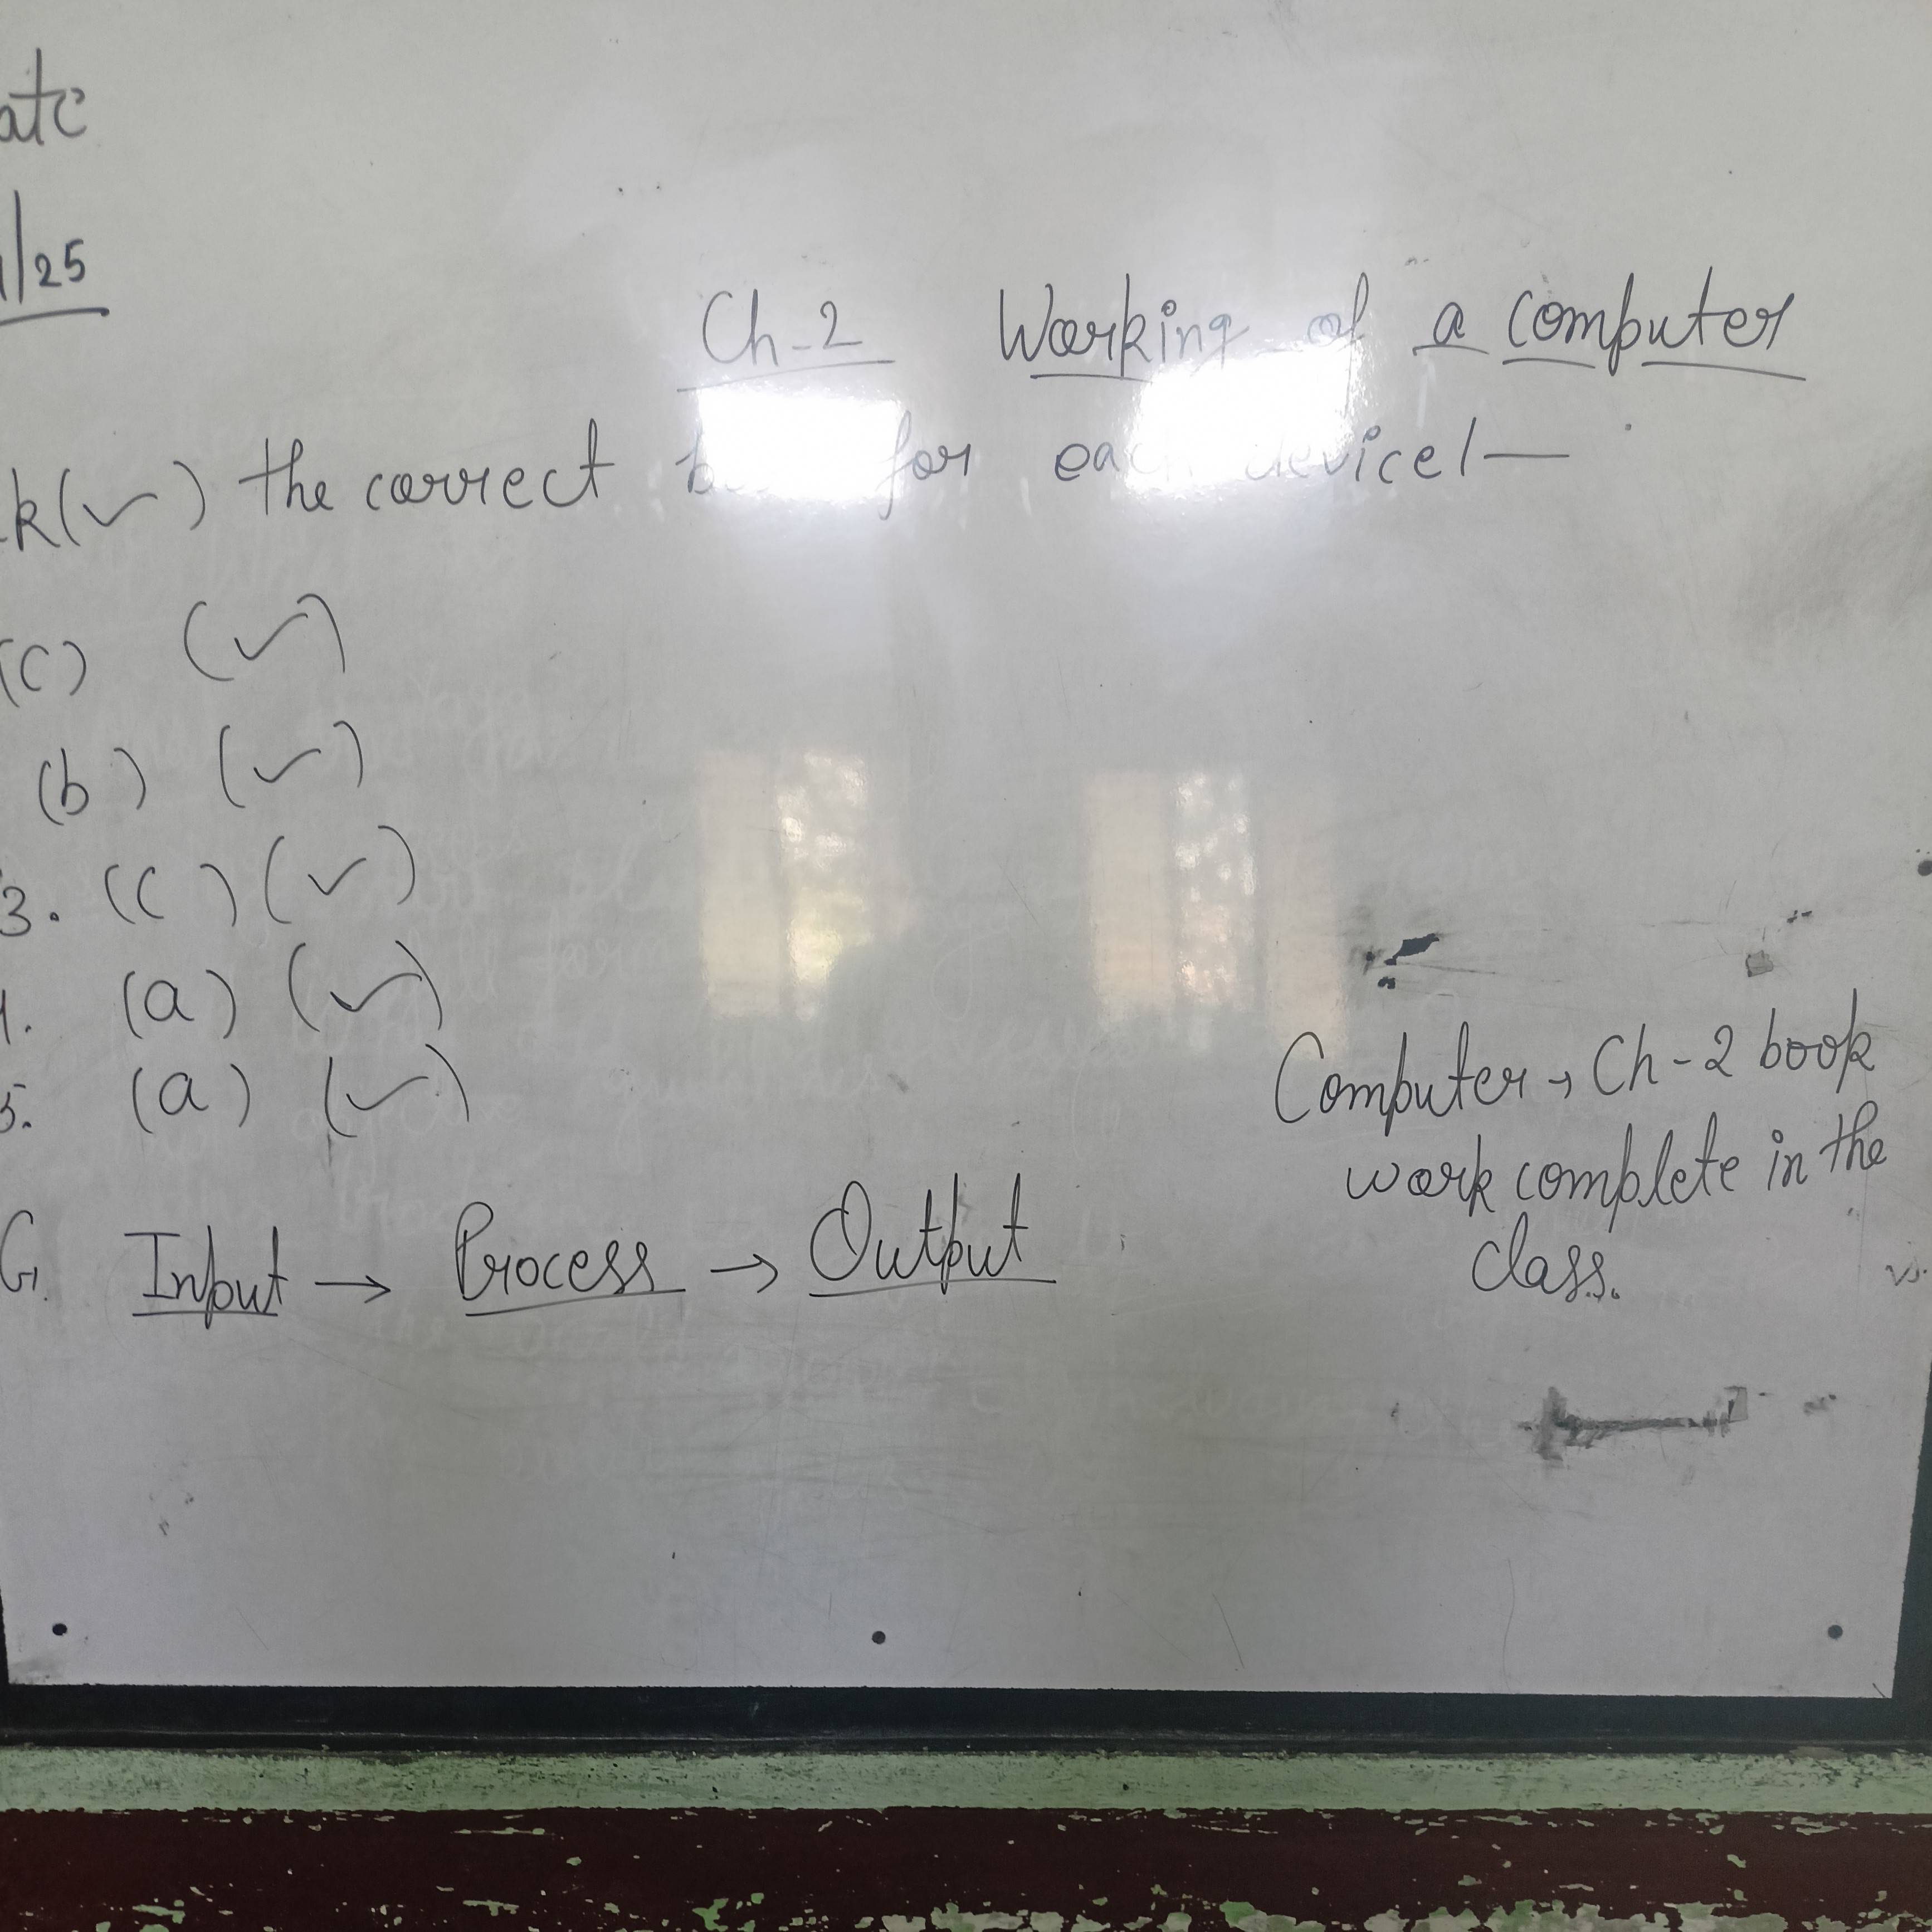 ate
1/25
Ch-2 Working of a computer
k(✓) the correct for each device!—
(c) (✓)
(b) (✓)
3. (c) (✓)
4. (a) (✓)
5. (a) (✓)
G. Input → Process → Output
Computer → Ch-2 book
work complete in the
class.